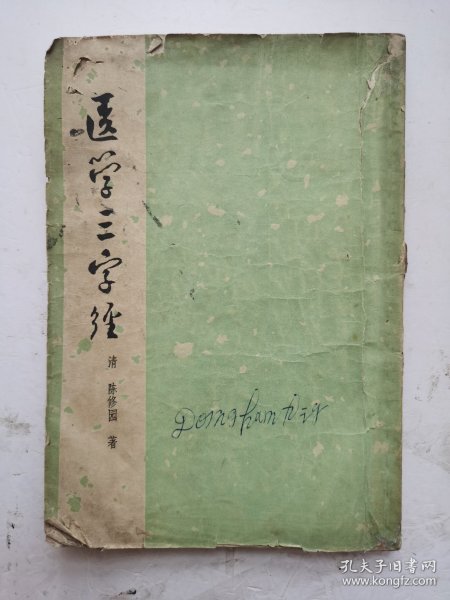 医学三字经
清 陈修园 著
孔夫子旧书网
www.kongfz.com